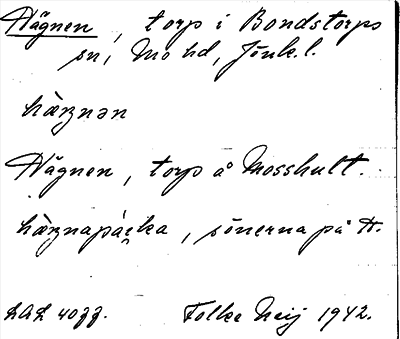 Hägnen, torp i Bondstorps
sn, Mo hd, Jönk. l.
hæŋnən
Hägnen, torp å Mosshult.
hæŋnapåcka, sönerna på H.
LAL 40 Folke Neij 1942.